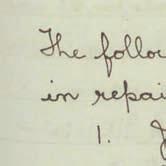 The follo
in repai
1.